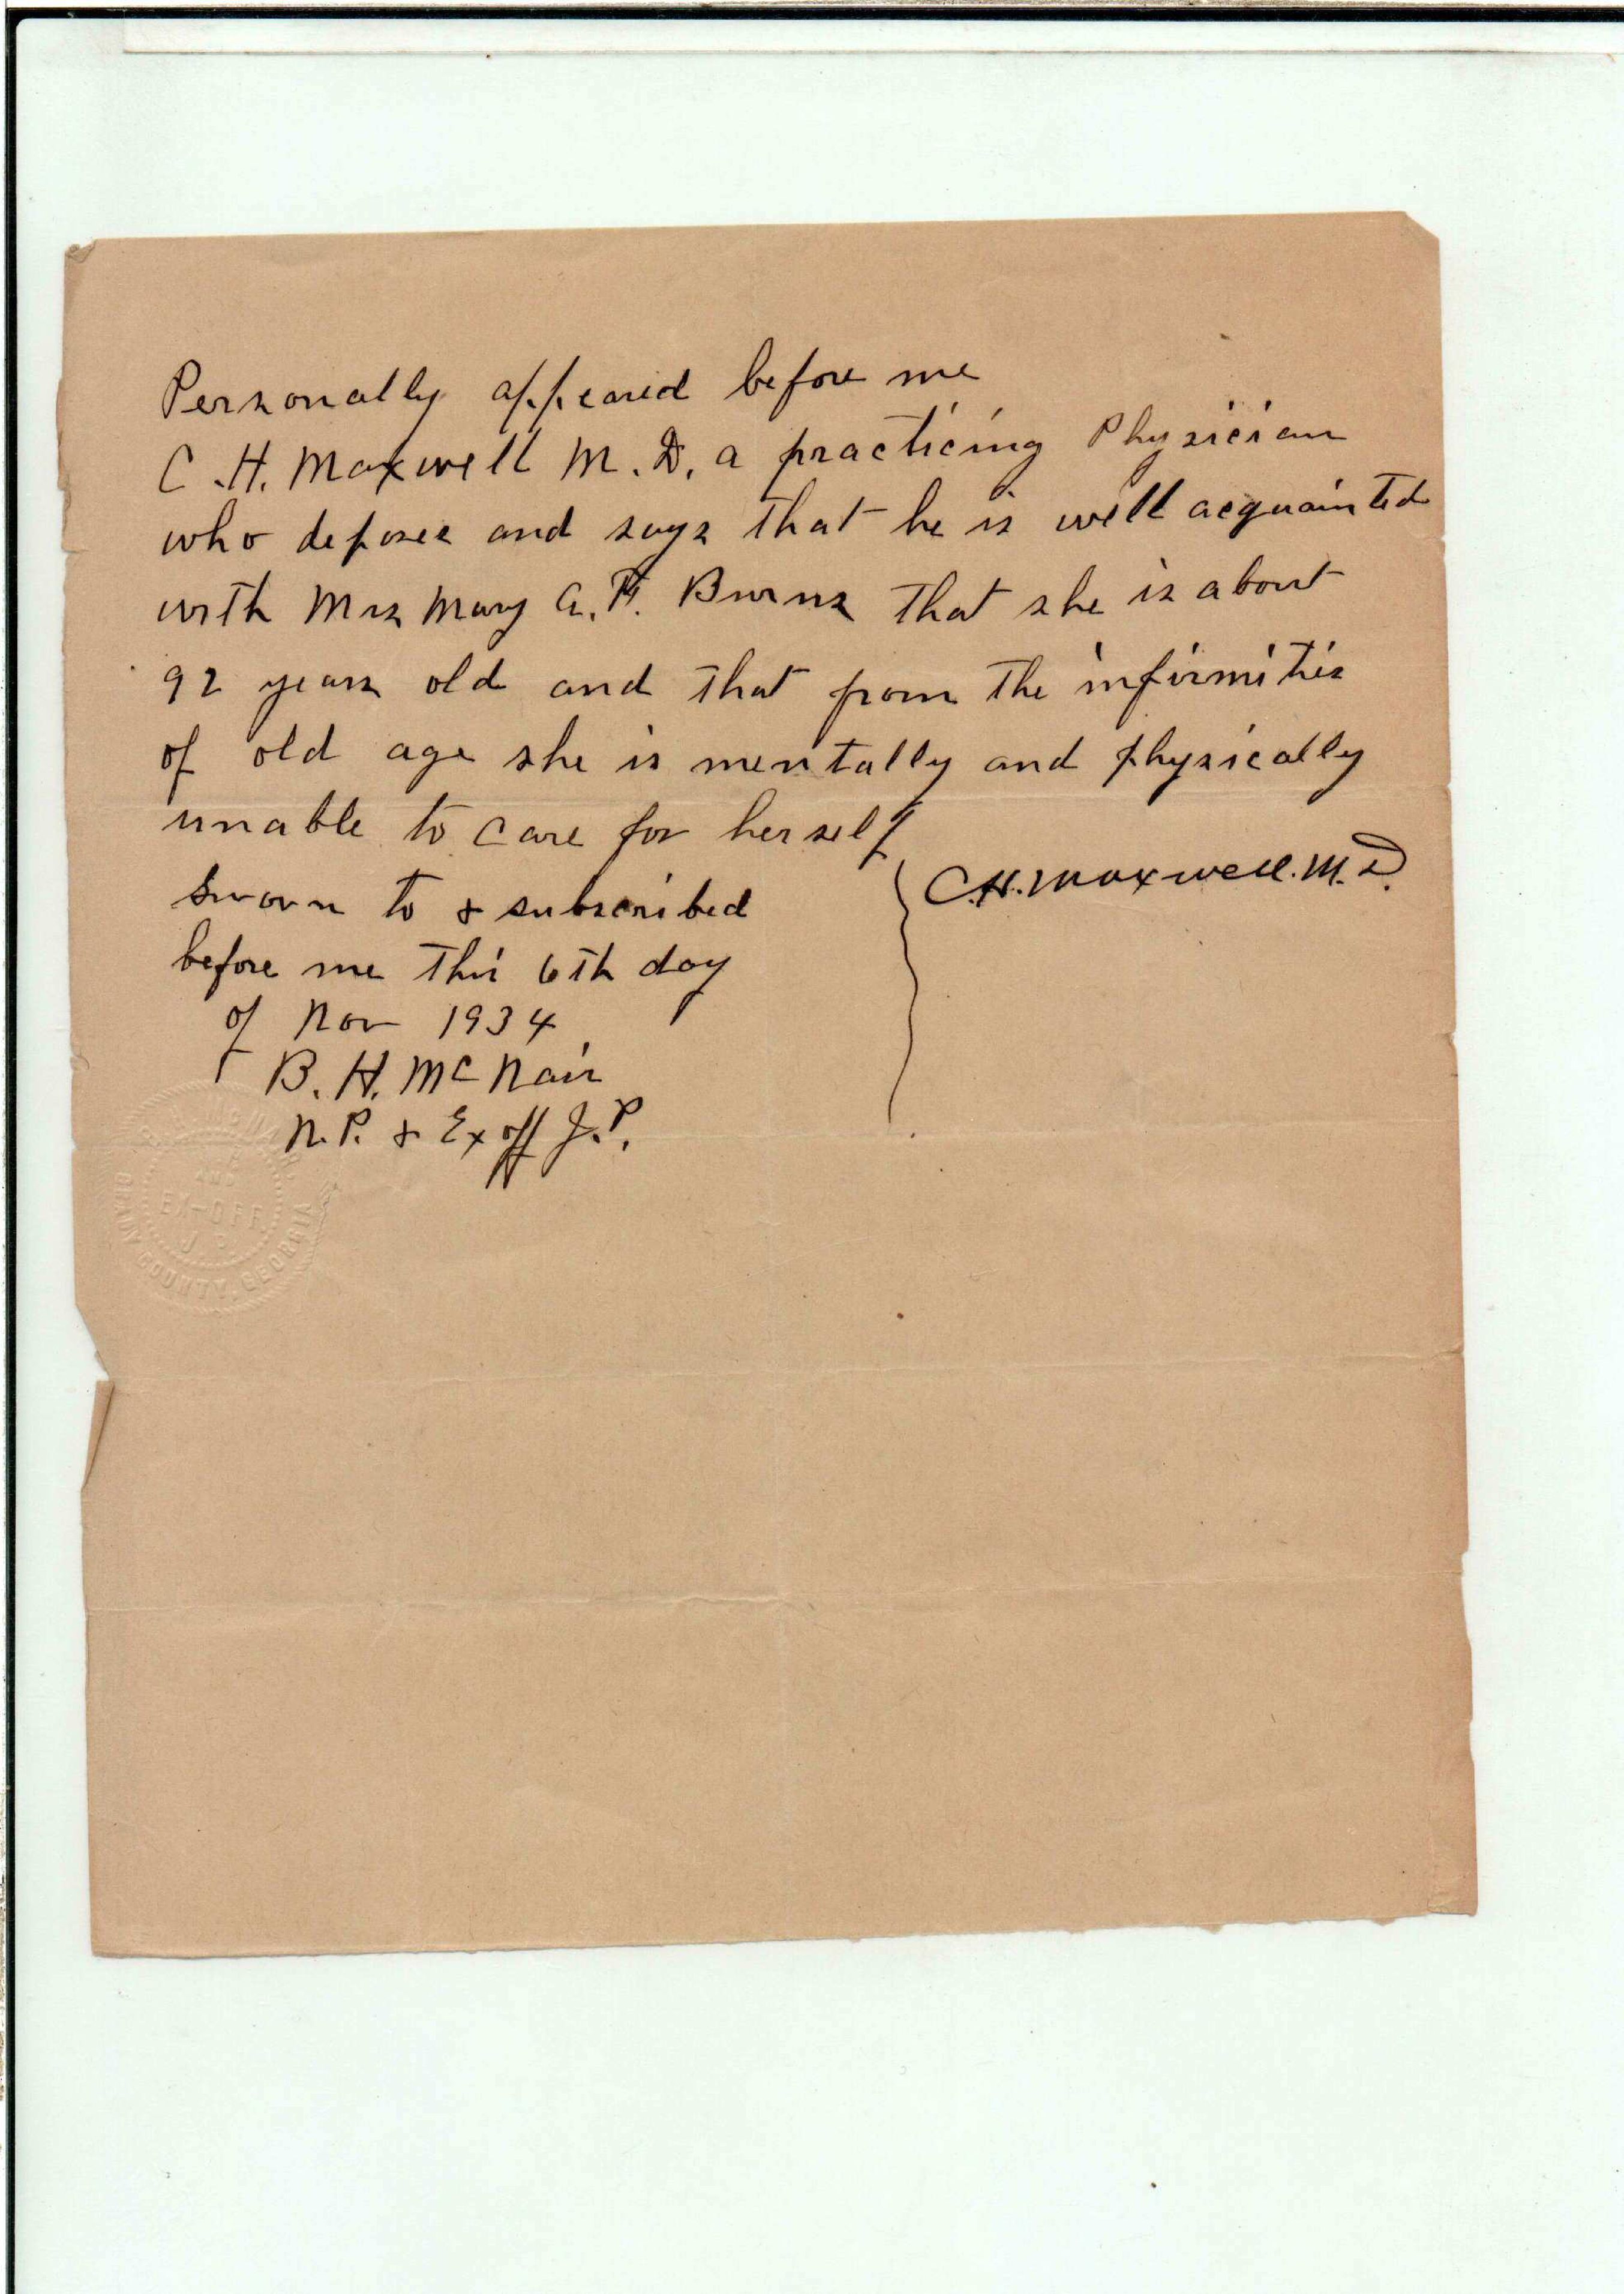 Personally appeared before me
C.H. Maxwell M.D. a practicing Physician
who deposes and says that he is well acquainted
with Mrs Mary A. F. Burns that she is about
92 years old and that from the infirmities
of old age she is mentally and physically
unable to care for herself
C.H. Maxwell. M.D.
Sworn to & subscribed
before me this 6th day
of Nov 1934
B. H. McNair
N.P. & Ex off J.P.
AND
EX-OFF.
J.P.
GRADY COUNTY, GEORGIA